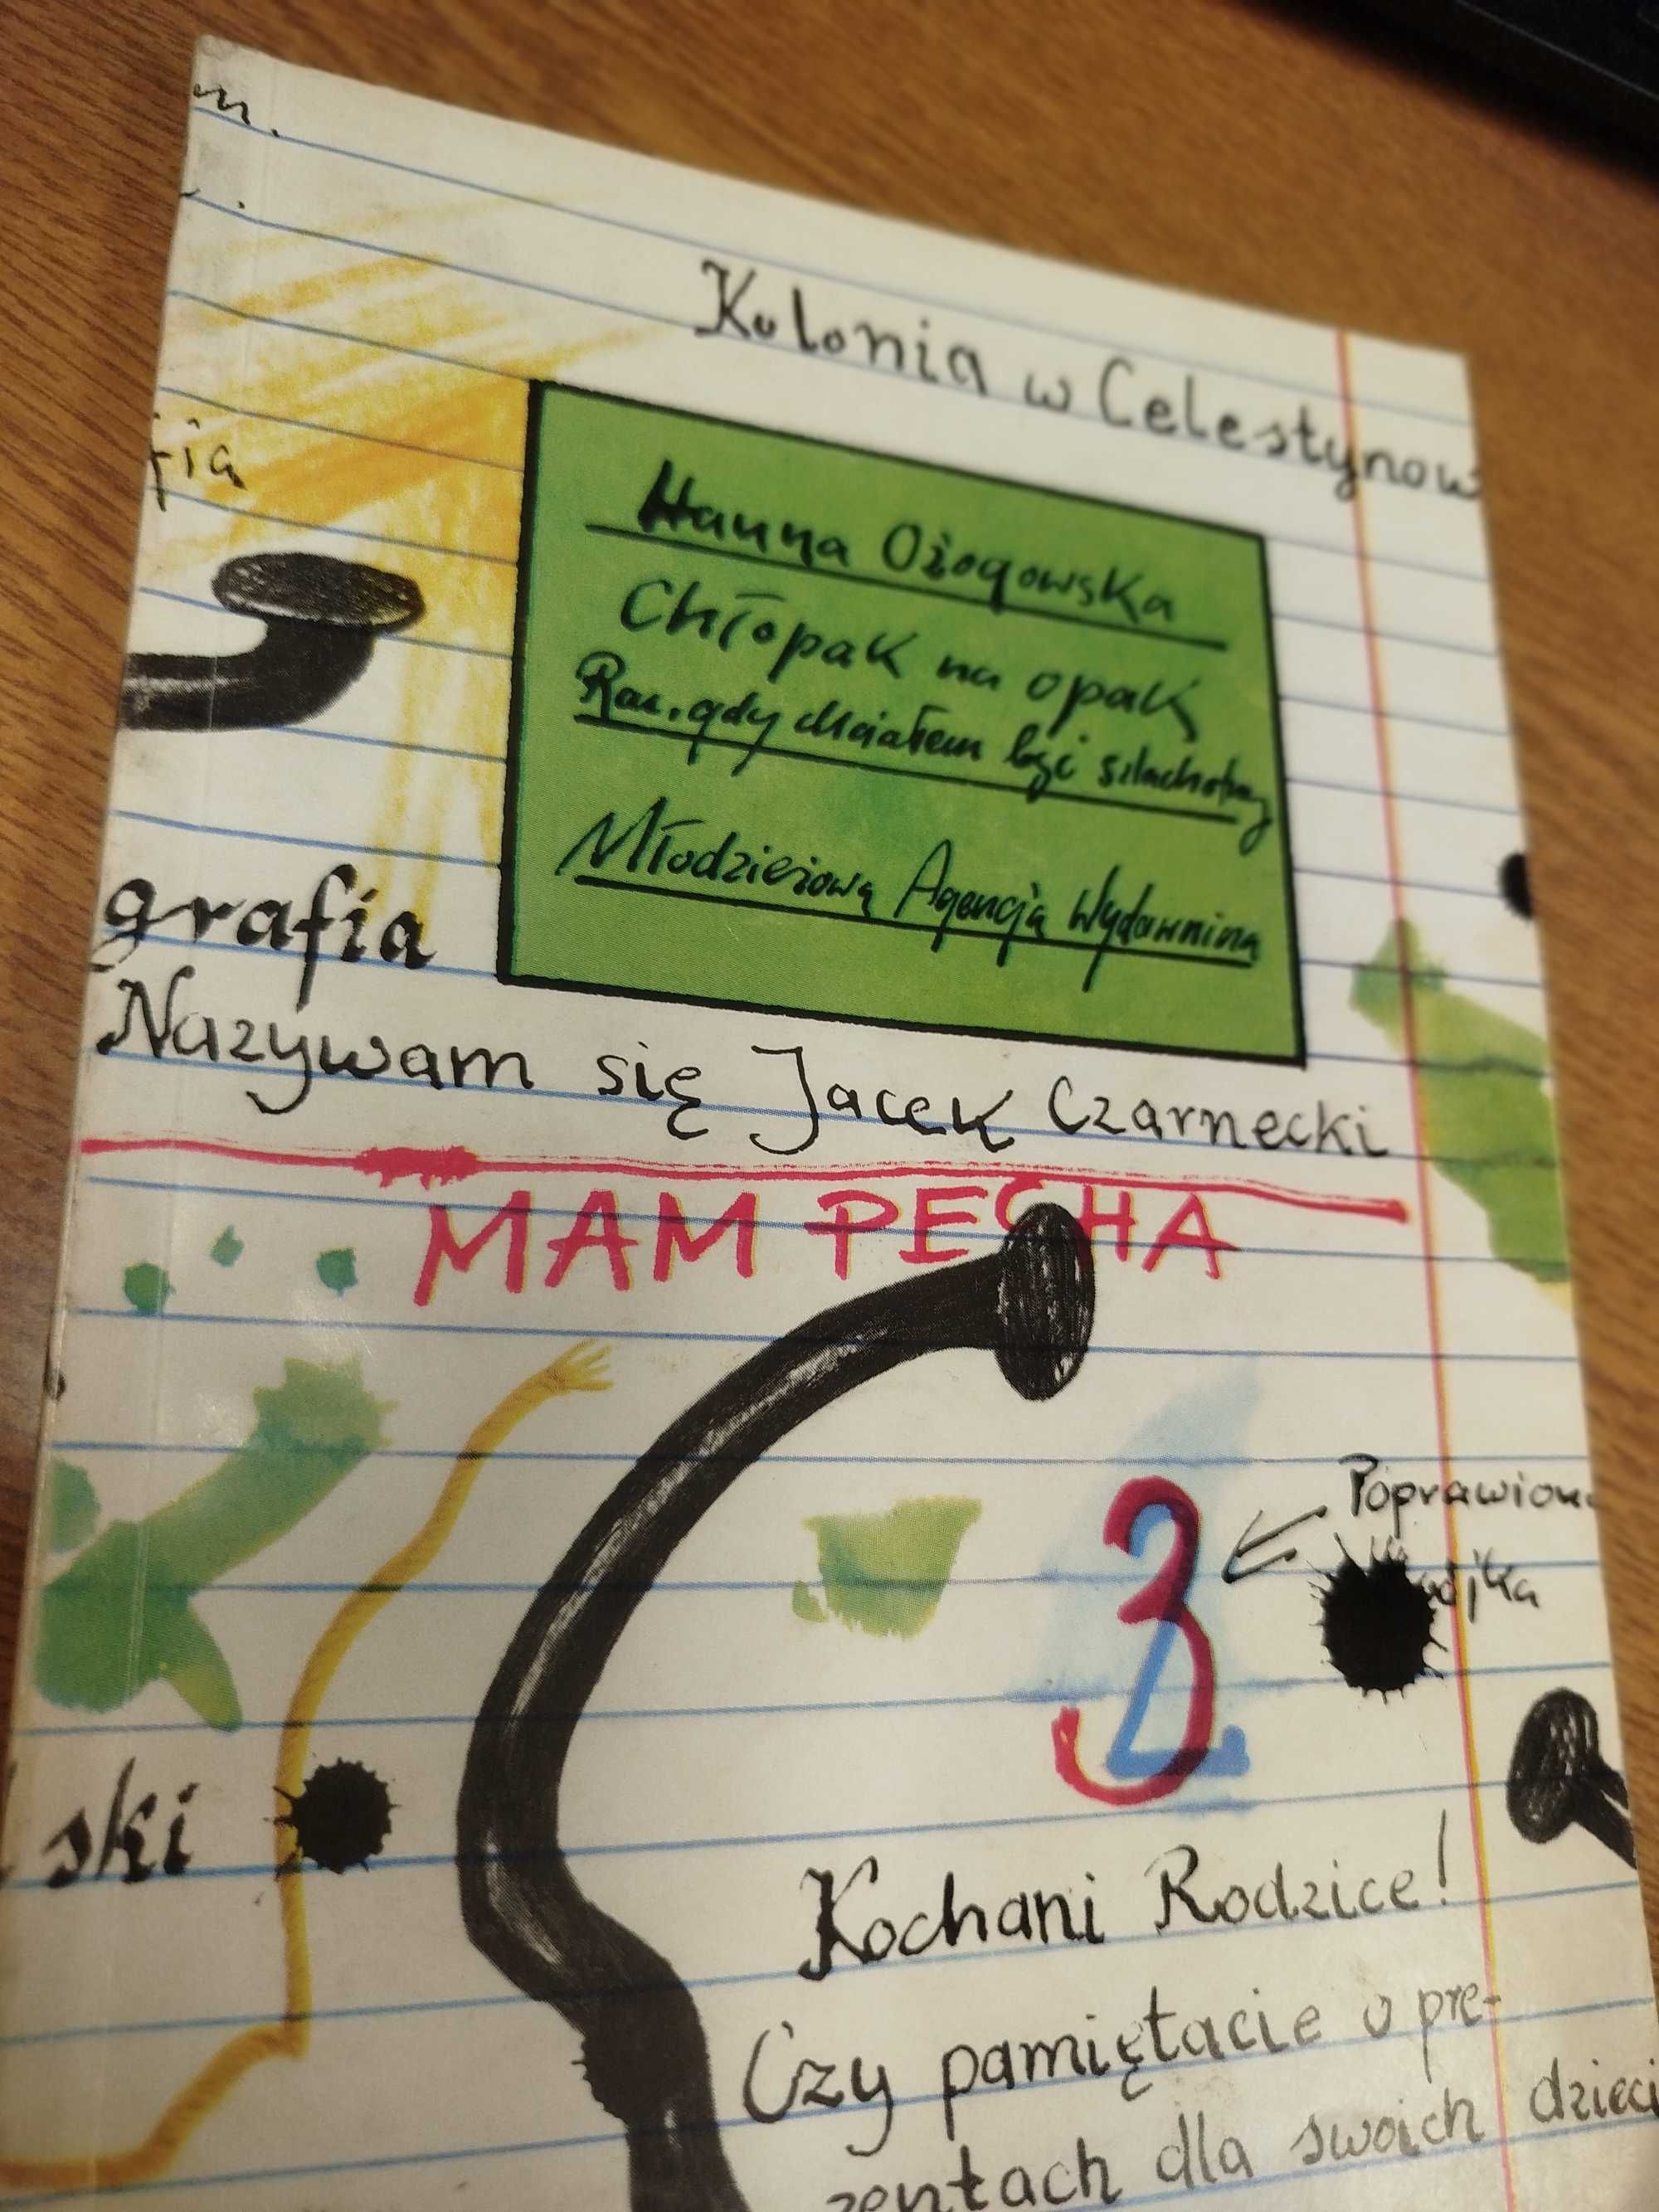 m.
Kolonia w Celestynow
fia
Hanna Ożogowska
Chłopak na opak
Raz, gdy chciałem być szlachetny
Młodzieżowa Agencja Wydawnicza
grafia
Nazywam się Jacek Czarnecki
MAM PECHA
3
Poprawion
ójka
ski
Kochani Rodzice!
Czy pamiętacie o pre-
zentach dla swoich dzieci